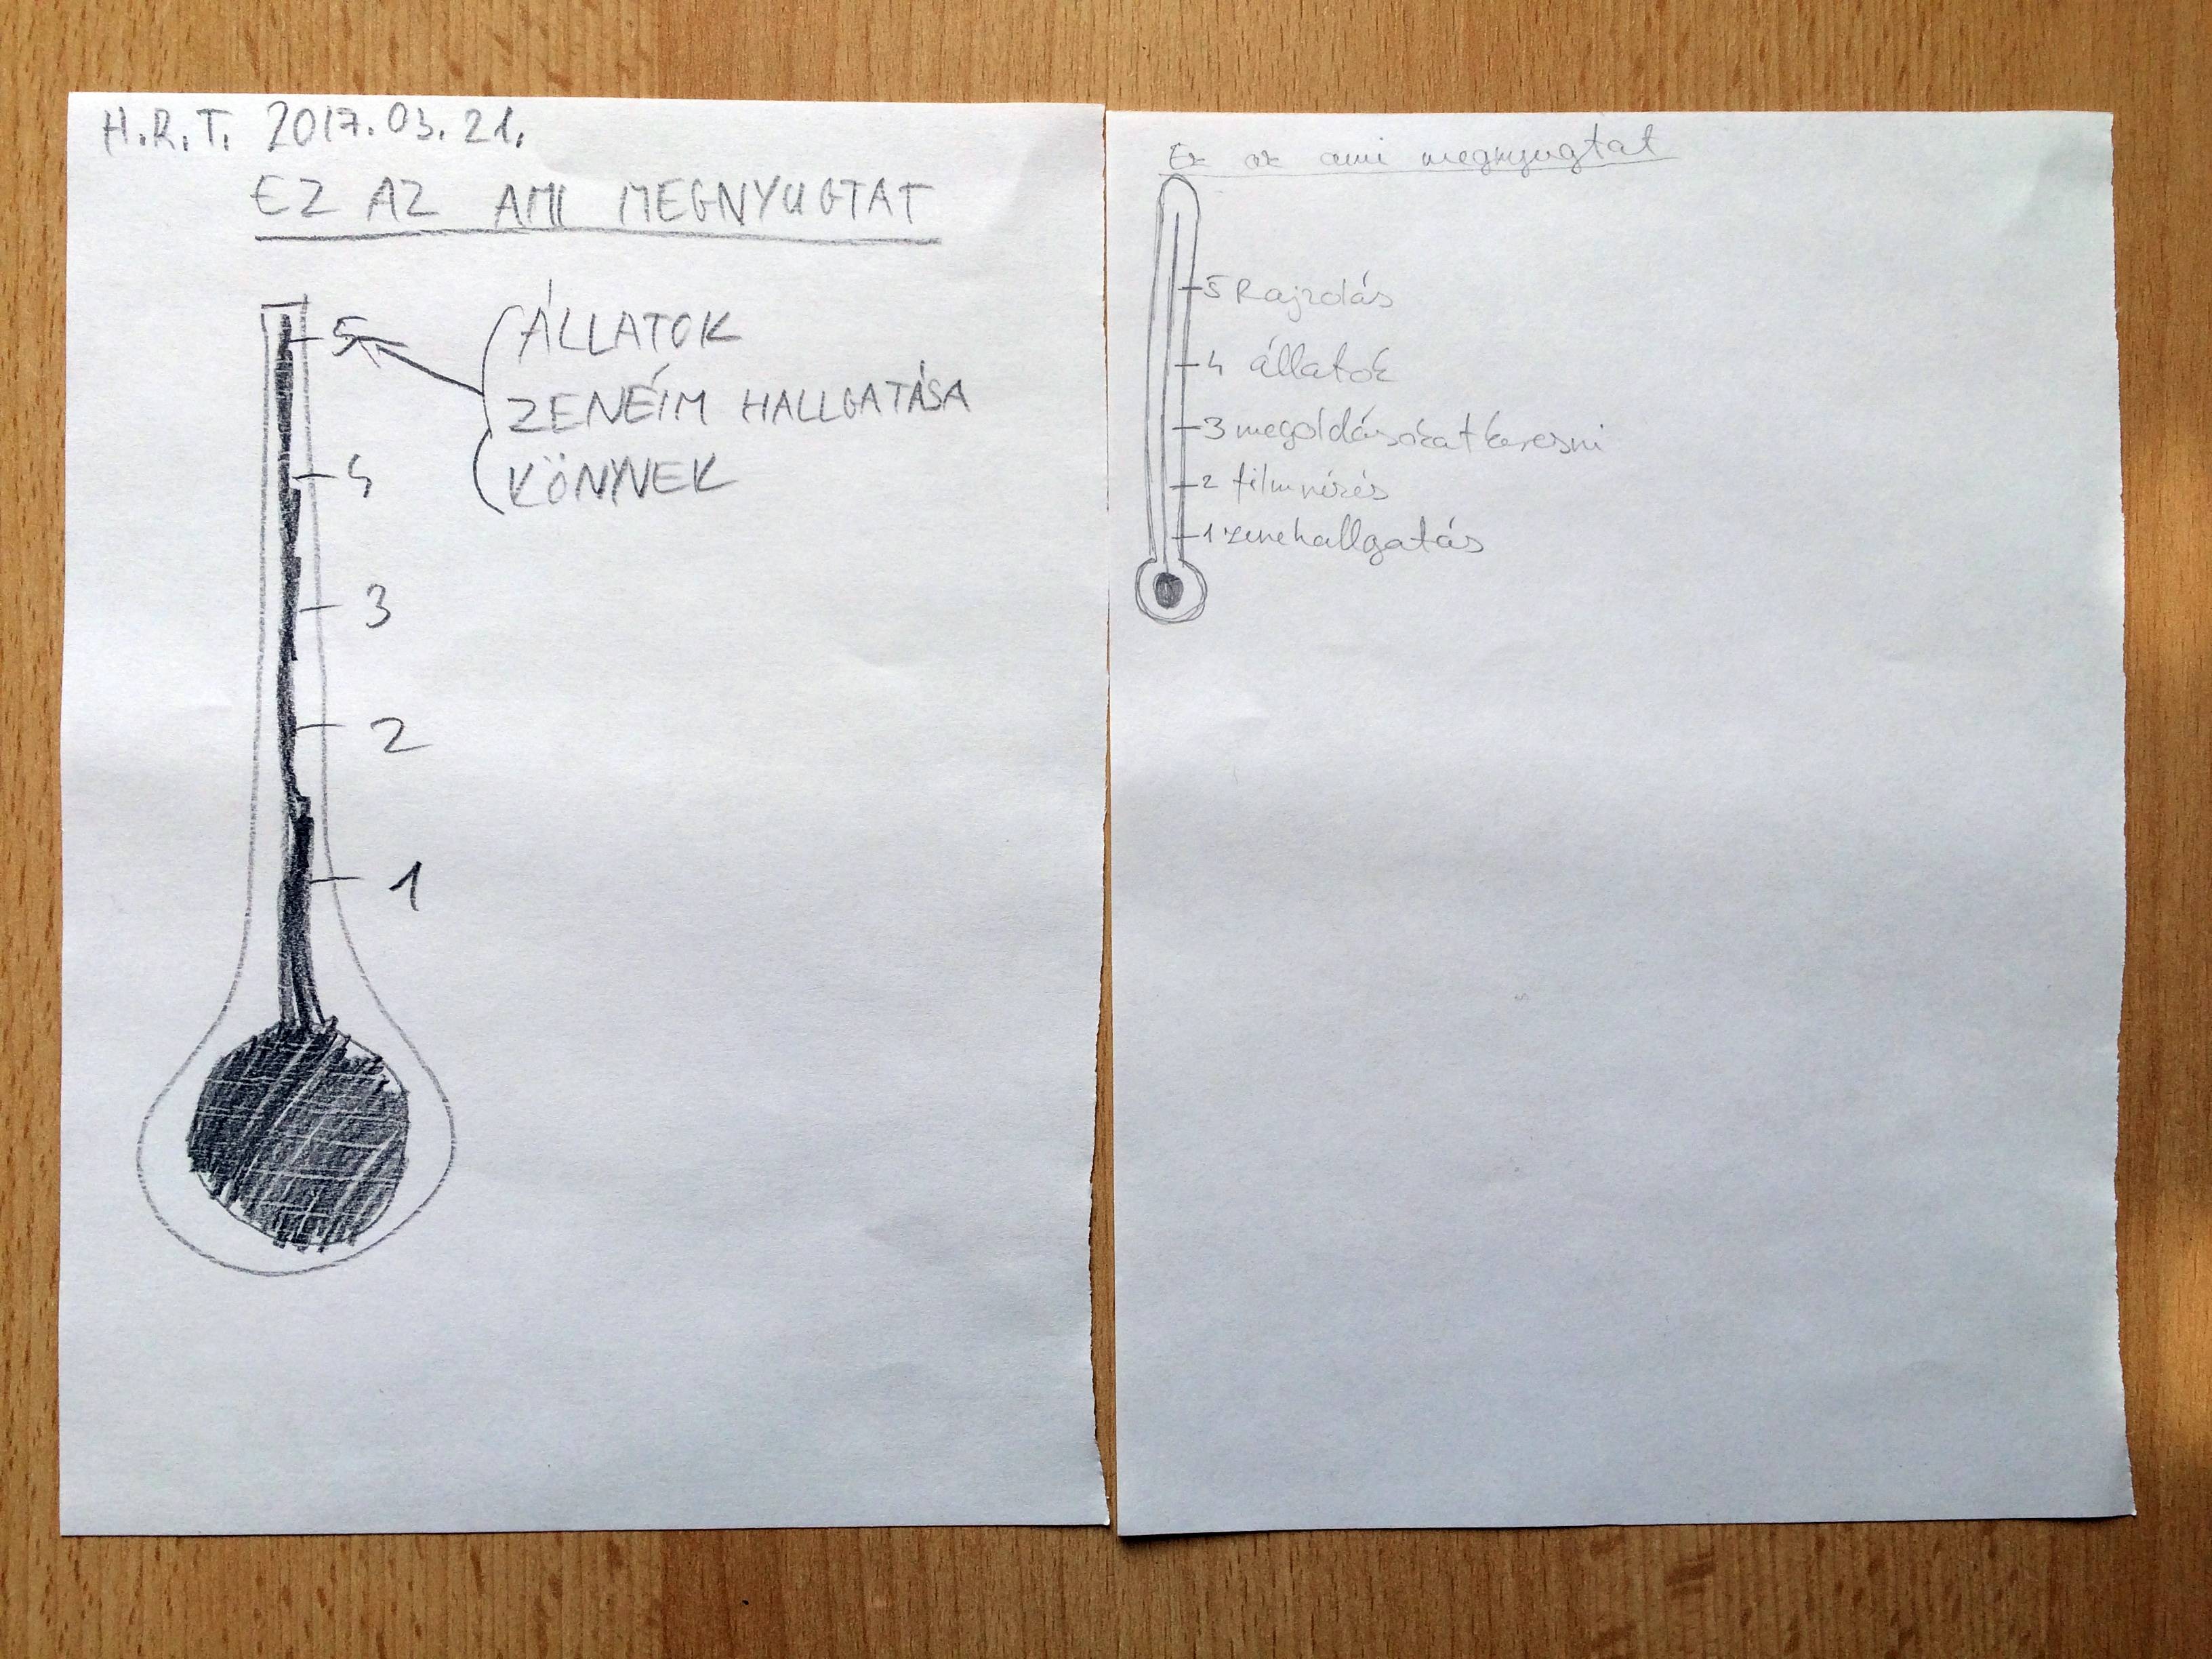 H.R.T. 2017.03.21.
EZ AZ AMI MEGNYUGTAT
5
ÁLLATOK
ZENÉIM HALLGATÁSA
KÖNYVEK
4
3
2
1
Ez az ami megnyugtat
5 Rajzolás
4 állatok
3 megoldásokat keresni
2 filmnézés
1 zenehallgatás